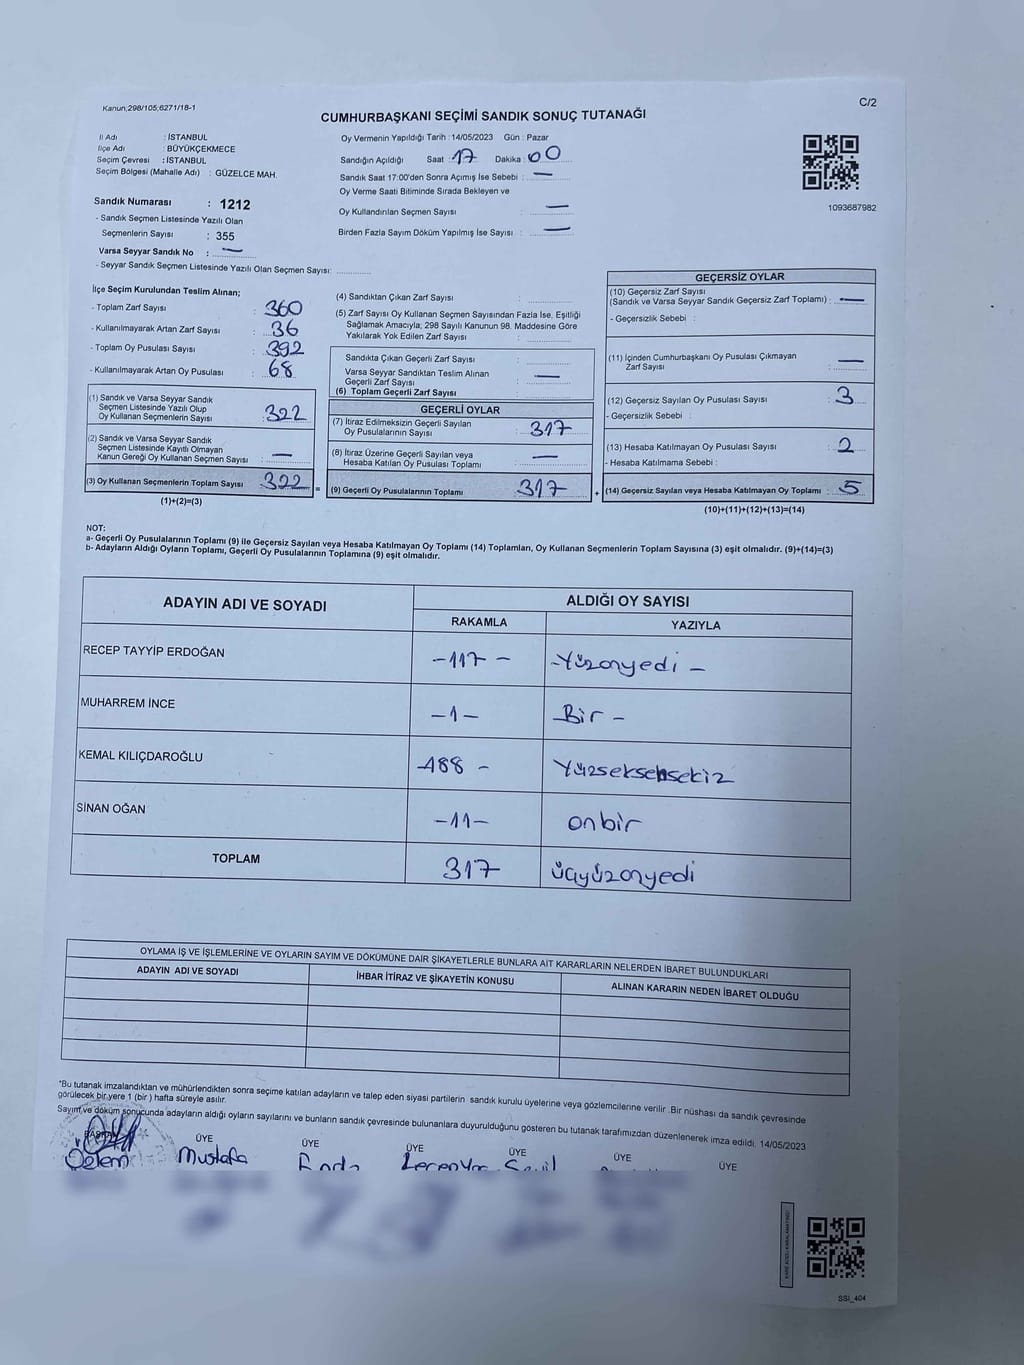 Kanun,298/105,6271/18-1
C/2
CUMHURBAŞKANI SEÇİMİ SANDIK SONUÇ TUTANAĞI
İl Adı : İSTANBUL
İlçe Adı : BÜYÜKÇEKMECE
Seçim Çevresi : İSTANBUL
Seçim Bölgesi (Mahalle Adı) : GÜZELCE MAH.
Sandık Numarası : 1212
- Sandık Seçmen Listesinde Yazılı Olan
Seçmenlerin Sayısı : 355
Varsa Seyyar Sandık No : —
- Seyyar Sandık Seçmen Listesinde Yazılı Olan Seçmen Sayısı:
Oy Vermenin Yapıldığı Tarih : 14/05/2023 Gün : Pazar
Sandığın Açıldığı Saat : 17 Dakika : 00
Sandık Saat 17:00'den Sonra Açımış İse Sebebi : —
Oy Verme Saati Bitiminde Sırada Bekleyen ve
Oy Kullandırılan Seçmen Sayısı : —
Birden Fazla Sayım Döküm Yapılmış İse Sayısı : —
1093687982
İlçe Seçim Kurulundan Teslim Alınan;
- Toplam Zarf Sayısı : 360
- Kullanılmayarak Artan Zarf Sayısı : 36
- Toplam Oy Pusulası Sayısı : 392
- Kullanılmayarak Artan Oy Pusulası : 68
(1) Sandık ve Varsa Seyyar Sandık
Seçmen Listesinde Yazılı Olup
Oy Kullanan Seçmenlerin Sayısı : 322
(2) Sandık ve Varsa Seyyar Sandık
Seçmen Listesinde Kayıtlı Olmayan
Kanun Gereği Oy Kullanan Seçmen Sayısı : —
(3) Oy Kullanan Seçmenlerin Toplam Sayısı : 322
(1)+(2)=(3)
(4) Sandıktan Çıkan Zarf Sayısı :
(5) Zarf Sayısı Oy Kullanan Seçmen Sayısından Fazla İse, Eşitliği
Sağlamak Amacıyla; 298 Sayılı Kanunun 98. Maddesine Göre
Yakılarak Yok Edilen Zarf Sayısı :
Sandıkta Çıkan Geçerli Zarf Sayısı :
Varsa Seyyar Sandıktan Teslim Alınan
Geçerli Zarf Sayısı : —
(6) Toplam Geçerli Zarf Sayısı :
GEÇERLİ OYLAR
(7) İtiraz Edilmeksizin Geçerli Sayılan
Oy Pusulalarının Sayısı : 317
(8) İtiraz Üzerine Geçerli Sayılan veya
Hesaba Katılan Oy Pusulası Toplamı : —
= (9) Geçerli Oy Pusulalarının Toplamı : 317
GEÇERSİZ OYLAR
(10) Geçersiz Zarf Sayısı
(Sandık ve Varsa Seyyar Sandık Geçersiz Zarf Toplamı) : —
- Geçersizlik Sebebi :
(11) İçinden Cumhurbaşkanı Oy Pusulası Çıkmayan
Zarf Sayısı : —
(12) Geçersiz Sayılan Oy Pusulası Sayısı : 3
- Geçersizlik Sebebi :
(13) Hesaba Katılmayan Oy Pusulası Sayısı : 2
- Hesaba Katılmama Sebebi :
+ (14) Geçersiz Sayılan veya Hesaba Katılmayan Oy Toplamı : 5
(10)+(11)+(12)+(13)=(14)
NOT:
a- Geçerli Oy Pusulalarının Toplamı (9) ile Geçersiz Sayılan veya Hesaba Katılmayan Oy Toplamı (14) Toplamları, Oy Kullanan Seçmenlerin Toplam Sayısına (3) eşit olmalıdır. (9)+(14)=(3)
b- Adayların Aldığı Oyların Toplamı, Geçerli Oy Pusulalarının Toplamına (9) eşit olmalıdır.
ADAYIN ADI VE SOYADI
ALDIĞI OY SAYISI
RAKAMLA YAZIYLA
RECEP TAYYİP ERDOĞAN -117- -Yüzonyedi-
MUHARREM İNCE -1- Bir -
KEMAL KILIÇDAROĞLU -188- Yüzseksensekiz
SİNAN OĞAN -11- onbir
TOPLAM 317 üçyüzonyedi
OYLAMA İŞ VE İŞLEMLERİNE VE OYLARIN SAYIM VE DÖKÜMÜNE DAİR ŞİKAYETLERLE BUNLARA AİT KARARLARIN NELERDEN İBARET BULUNDUKLARI
ADAYIN ADI VE SOYADI İHBAR İTİRAZ VE ŞİKAYETİN KONUSU ALINAN KARARIN NEDEN İBARET OLDUĞU
*Bu tutanak imzalandıktan ve mühürlendikten sonra seçime katılan adayların ve talep eden siyasi partilerin sandık kurulu üyelerine veya gözlemcilerine verilir .Bir nüshası da sandık çevresinde
görülecek bir yere 1 (bir ) hafta süreyle asılır.
Sayım ve döküm sonucunda adayların aldığı oyların sayılarını ve bunların sandık çevresinde bulunanlara duyurulduğunu gösteren bu tutanak tarafımızdan düzenlenerek imza edildi. 14/05/2023
BAŞKAN ÜYE ÜYE ÜYE ÜYE ÜYE ÜYE
Özlem Mustafa
SSI_404